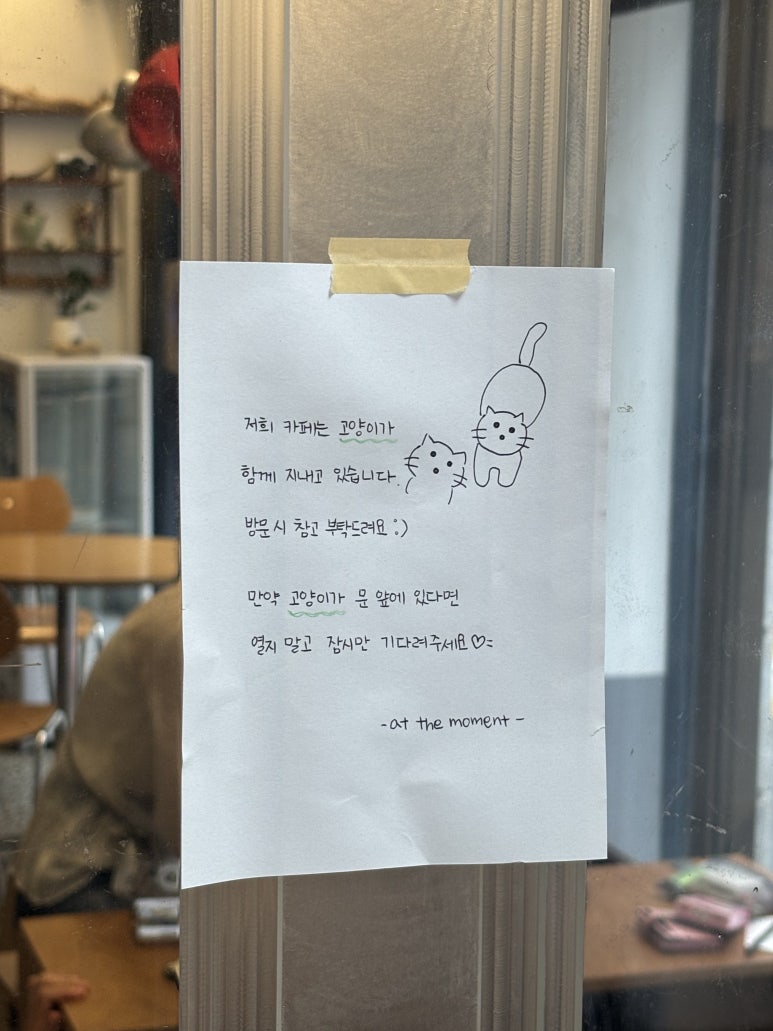 저희 카페는 고양이가
함께 지내고 있습니다.
방문시 참고 부탁드려요 :)
만약 고양이가 문 앞에 있다면
열지 말고 잠시만 기다려주세요♡=
-at the moment-